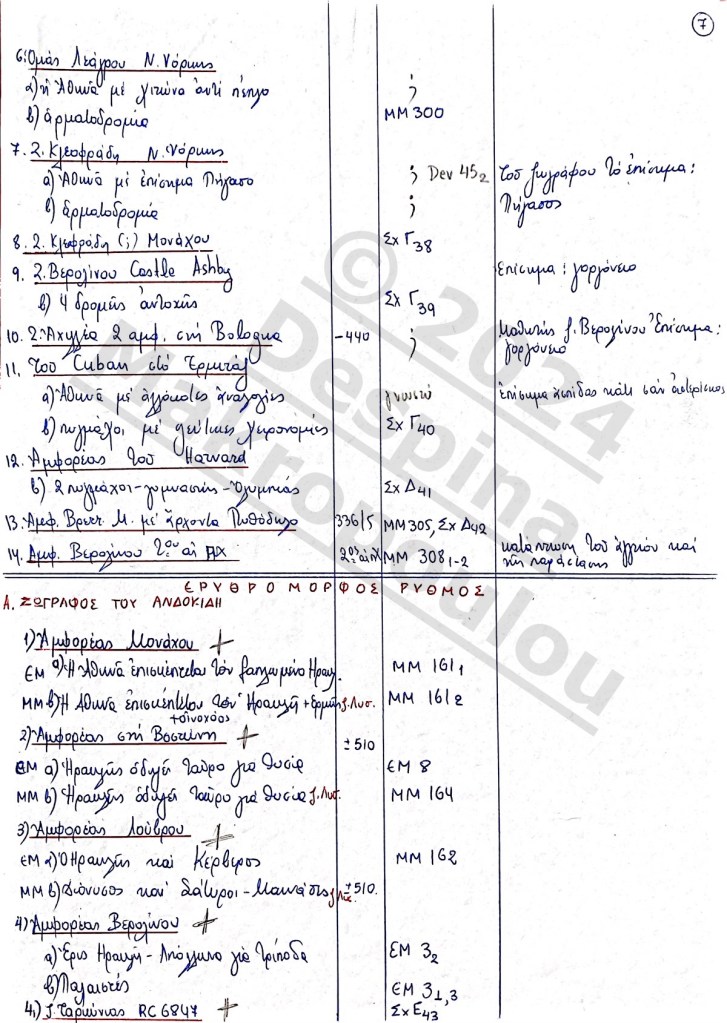 7
6. Ὁμάς Λεάγρου Ν. Υόρκης
α) ἡ Ἀθηνᾶ μέ χιτώνα ἀντί πέπλο ;
β) ἁρματοδρομία ΜΜ 300
7. Ζ. Κλεοφράδη Ν. Υόρκης
α) Ἀθηνᾶ μέ ἐπίσημα Πήγασο ; Dev 45₂ τοῦ ζωγράφου τό ἐπίσημα:
β) ἁρματοδρομία ; Πήγασος
8. Ζ. Κλεοφράδη (;) Μονάχου Σχ Γ38
9. Ζ. Βερολίνου Castle Ashby Ἐπίσημα: γοργόνειο
β) 4 δρομεῖς ἀντοχῆς Σχ Γ39
10. Ζ. Ἀχιλλέα 2 ἀμφ. στή Bologna -440 ; Μαθητής ζ. Βερολίνου Ἐπίσημα:
γοργόνειο
11. Τοῦ Cuban στό Ἐρμιτάζ
α) Ἀθηνᾶ μέ ἀλλόκοτες ἀναλογίες γνωστό ἐπίσημα ἀσπίδας κάτι σαν ἀστερίσκος
β) πυγμάχοι μέ χειρονομίες Σχ Γ40
12. Ἀμφορέας τοῦ Harvard
β) 2 πυγμάχοι-γυμναστής-Ὀλυμπιάς Σχ Δ41
13. Ἀμφ. Βρετ. Μ. μέ ἄρχοντα Πυθόδηλο 336/5 ΜΜ305, Σχ Δ42
14. Ἀμφ. Βερολίνου 2ου αἰ ΠΧ 2ος αἰ πΧ ΜΜ 308₁₋₂ κατάπτωση τοῦ ἀγγείου καί
τῆς παράστασης
ΕΡΥΘΡΟΜΟΡΦΟΣ ΡΥΘΜΟΣ
Α. ΖΩΓΡΑΦΟΣ ΤΟΥ ΑΝΔΟΚΙΔΗ
1) Ἀμφορέας Μονάχου +
ΕΜ α) Ἡ Ἀθηνᾶ ἐπισκέπτεται τόν ξαπλωμένο Ἡρακλ. ΜΜ 161₁
ΜΜ β) Ἡ Ἀθηνᾶ ἐπισκέπτεται τόν Ἡρακλῆ + Ἑρμῆς ζ. Λυσ. ΜΜ 161₂
+ οἰνοχόος
2) Ἀμφορέας στή Βοστώνη + ±510
ΕΜ α) Ἡρακλῆς ὁδηγεῖ ταῦρο για θυσία ΕΜ 8
ΜΜ β) Ἡρακλῆς ὁδηγεῖ ταῦρο για θυσία ζ. Λυσ. ΜΜ 164
3) Ἀμφορέας Λούβρου +
ΕΜ α) Ὁ Ἡρακλῆς καί Κέρβερος ΜΜ 162
ΜΜ β) Διόνυσος καί Σάτυροι - Μαινάδες ζ. Λυσ. ±510.
4) Ἀμφορέας Βερολίνου +
α) Ἔρις Ἡρακλῆ - Ἀπόλλωνα γιά τρίποδα ΕΜ 3₂
β) Παλαιστές ΕΜ 3₁,₃
4₁) ζ. Ταρκύνιας RC 6847 + Σχ Ε43
© 2024
Despina
Makropoulou